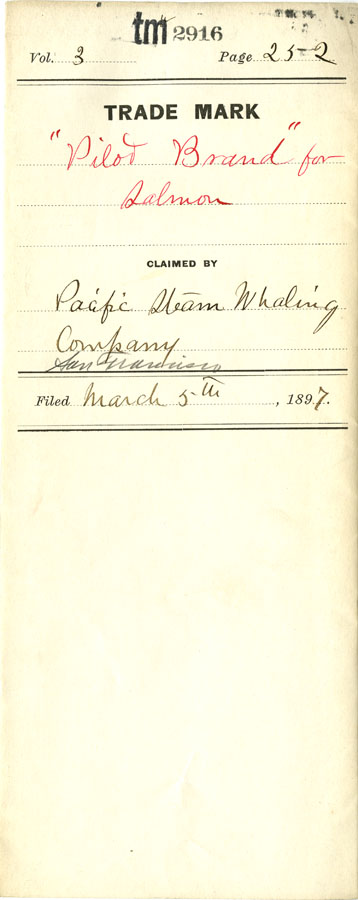 tm 2916
Vol. 3 Page 252
TRADE MARK
"Pilot Brand" for
Salmon
CLAIMED BY
Pacific Steam Whaling
Company
San Francisco
Filed March 5th, 1897.